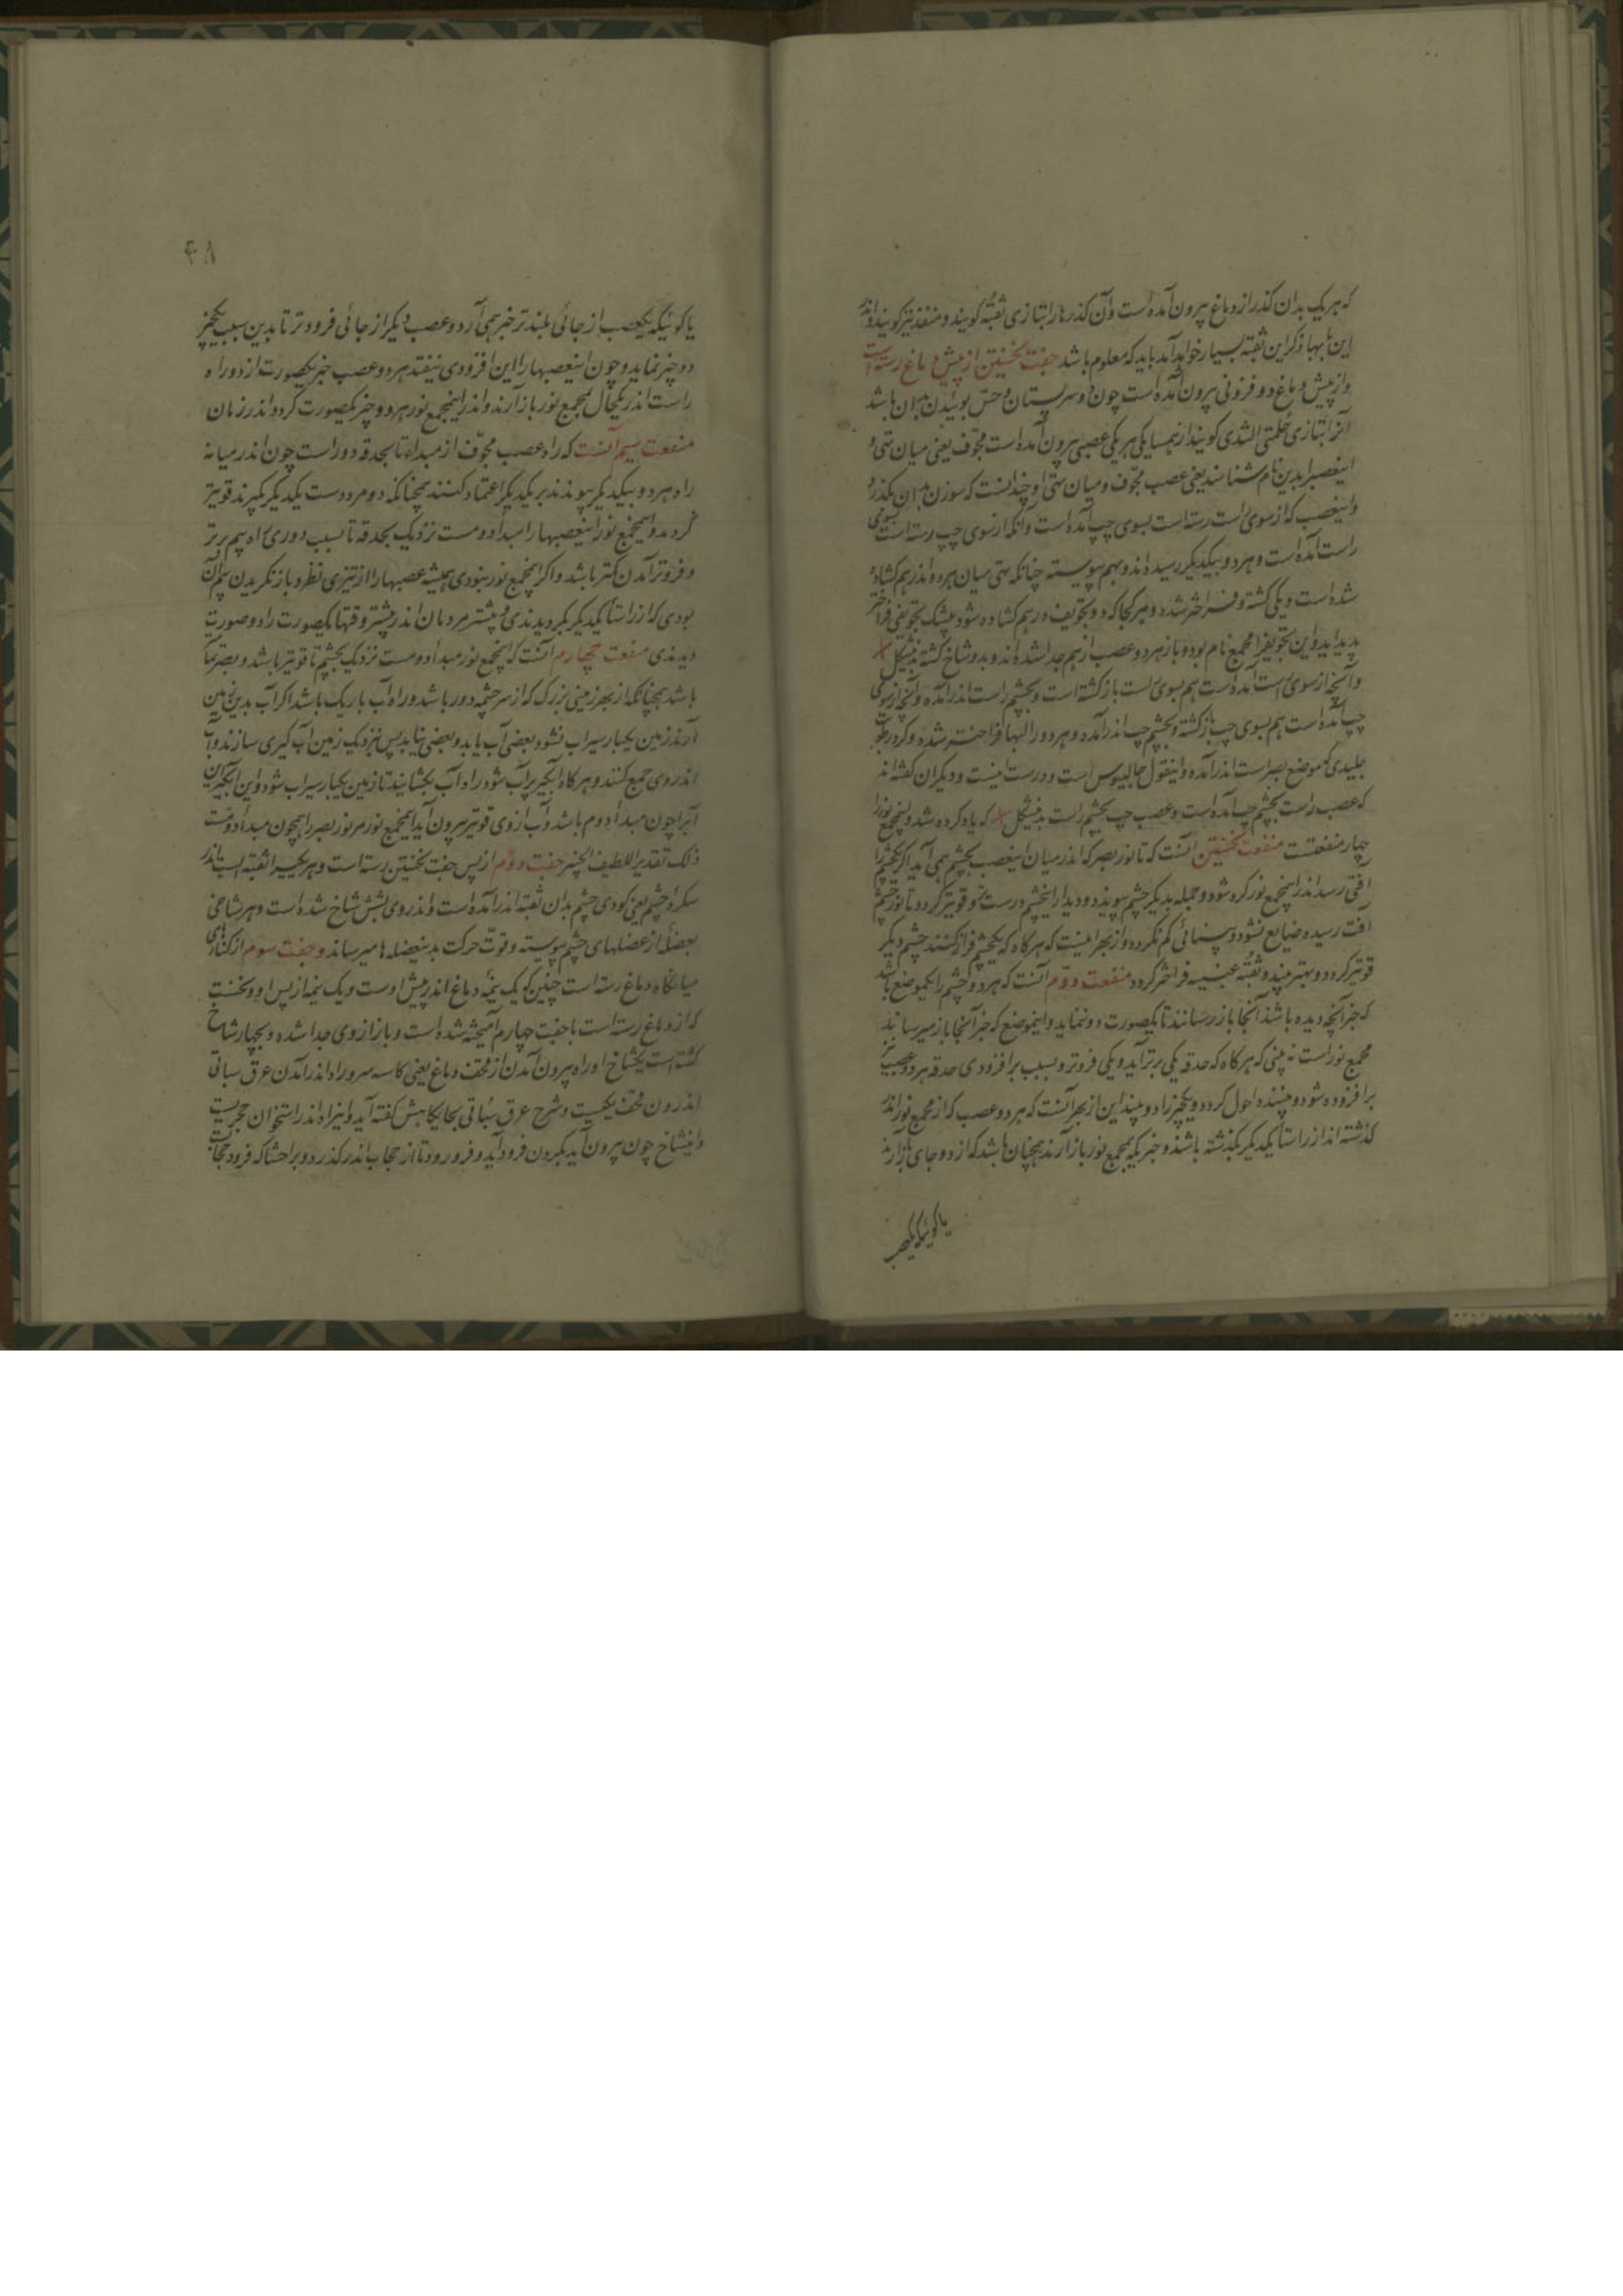 که هر یک بدان گذر از دماغ بیرون آمده است و آن گذرها را بتازی ثقبه گویند و منفذ نیز گویند و اندر
این بابها ذکر این ثقبه بسیار خواهد آمد باید که معلوم باشد جفت نخستین از پیش دماغ رسته است
و از پیش دماغ دو فزونی بیرون آمده است چون دو سر پستان و حس بوئیدن بدان باشد
آنرا بتازی حلمتی الثدی گویند از همسایگی هر یکی عصبی بیرون آمده است مجوّف یعنی میان تهی و
اینعصبرا بدین نام شناسند یعنی عصب مجوّف و میان تهی او چندانست که سوزن بدان بگذرد
و اینعصب که از سوی راست رسته است بسوی چپ آمده است و آنکه از سوی چپ رسته است بسوی
راست آمده است و هر دو بیکدیگر رسیده اند و بهم پیوسته چنانکه تهی میان هر دو اندر هم گشاده
شده است و یکی گشته و فراختر شده و هر کجا که دو تجویف در هم گشاده شود بیشک تجویفی فراختر
پدید اید و این تجویفرا مجمع نام بود و باز هر دو عصب از هم جدا شده اند و بدو شاخ گشته بدینشکل
و آنچه از سوی راست آمده است هم بسوی راست بازگشته است و بچشم راست اندر آمده و آنچه از سوی
چپ آمده است هم بسوی چپ بازگشته و بچشم چپ اندر آمده و هر دو را لبها فراختر شده و گرد رطوبت
جلیدی که موضع بصر است اندر آمده و اینقول جالینوس است و درست اینست و دیگران گفته اند
که عصب راست بچشم چپ آمده است و عصب چپ بچشم راست بدینشکل که یاد کرده شد و اینمجمع نوررا
چهار منفعتست منفعت نخستین آنست که تا نور بصر که اندر میان اینعصب بچشم همی آید اگر یکچشمرا
آفتی رسد اندر اینمجمع نور گرد شود و جمله بدیگر چشم پیوندد و دیدار اینچشم درست و قویتر گردد تا نور چشم
آفت رسیده ضایع نشود و بینائی کم نگردد و از بهر اینست که هر گاه که یکچشم فراز کنند چشم دیگر
قویتر گردد و بهتر بیند و ثقبه عنبیه فراختر گردد منفعت دوّم آنست که هر دو چشم را یکموضع باشد
که خبر آنچه دیده باشد آنجا باز رسانند تا یکصورت دو ننماید و اینموضع که خبر آنجا باز میرسانند
مجمع نور است نه بینی که هر گاه که حدقه یکی برتر آید و یکی فروتر و بسبب بر افزودی حدقه هر دو عصب نیز
بر افزوده شود و بیننده احول گردد و یکچیز را دو بیند این از بهر آنست که هر دو عصب که از مجمع نور اندر
گذشته اند از راستا یکدیگر بگذشته باشند و خبر که بمجمع نور باز آرند همچنان باشد که از دو جای باز آرند
یا گوئیکه یکعصب
۴۸
یا گوئیکه یکعصب از جائی بلندتر خبر همی آرد و عصب دیگر از جائی فروتر تا بدین سبب یکچیز
دو چیز نماید و چون اینعصبها را این افزودی نیفتد هر دو عصب خبر یکصورت از دو راه
راست اندر یکحال بمجمع نور باز آرند و اندر اینمجمع نور هر دو خبر یکصورت گردد اندر زمان
منفعت سیم آنست که راه عصب مجوّف از مبداء تا بحدقه دور است چون اندر میانه
راه هر دو بیکدیگر پیوندند بر یکدیگر اعتماد کنند همچنانکه دو مرد دست یکدیگر بگیرند قویتر
گردند و اینمجمع نور اینعصبها را مبدأ دومست نزدیک بحدقه تا بسبب دوری راه بیم برتر
و فروتر آمدن کمتر باشد و اگر اینمجمع نور نبودی همیشه عصبها را از تیزی نظر و باز نگریدن بیم آن
بودی که از راستا یکدیگر بگردیدندی و بیشتر مردمان اندر بیشتر وقتها یکصورت را دو صورت
دیدندی منفعت چهارم آنست که اینمجمع نور مبدأ دومست نزدیک بچشم تا قویتر باشد و بصر تمام
باشد همچنانکه از بهر زمینی بزرگ که از سر چشمه دور باشد و راه آب باریک باشد اگر آب بدین زمین
آرند زمین یکبار سیراب نشود بعضی آب یابد و بعضی نیابد پس نزدیک زمین آب گیری سازند و آب
اندر وی جمع کنند و هر گاه آبگیر پر آب شود راه آب بگشایند تا زمین یکبار سیراب شود و این آبگیر این
آبرا چون مبدأ دوم باشد و آب از وی قویتر بیرون آید اینمجمع نور مر نور بصر را همچون مبدأ دومست
ذلک تقدیر اللطیف الخبیر جفت دوّم از پس جفت نخستین رسته است و هر یکیرا ثقبه ایست اندر
سکره چشم یعنی گودی چشم بدان ثقبه اندر آمده است و اندر وی بشش شاخ شده است و هر شاخی
بعضله از عضلهای چشم پیوسته و قوّت حرکت بدینعضله ها میرساند و جفت سوم از کنارهای
میانگاه دماغ رسته است چنین که یک نیمه دماغ اندر پیش اوست و یک نیمه از پس او و نخست
که از دماغ رسته است با جفت چهارم آمیخته شده است و باز از وی جدا شده و بچهار شاخ
گشته است یکشاخ او راه بیرون آمدن از قحف دماغ یعنی کاسه سر و راه اندر آمدن عرق سباتی
اندرون قحف یکیست و شرح عرق سُباتی بجایگاهش گفته آید و اینراه اندر استخوان حجریست
و اینشاخ چون بیرون آید بگردن فرود آید و فرو رود تا از حجاب اندر گذرد و بر احشا که فرود حجابست